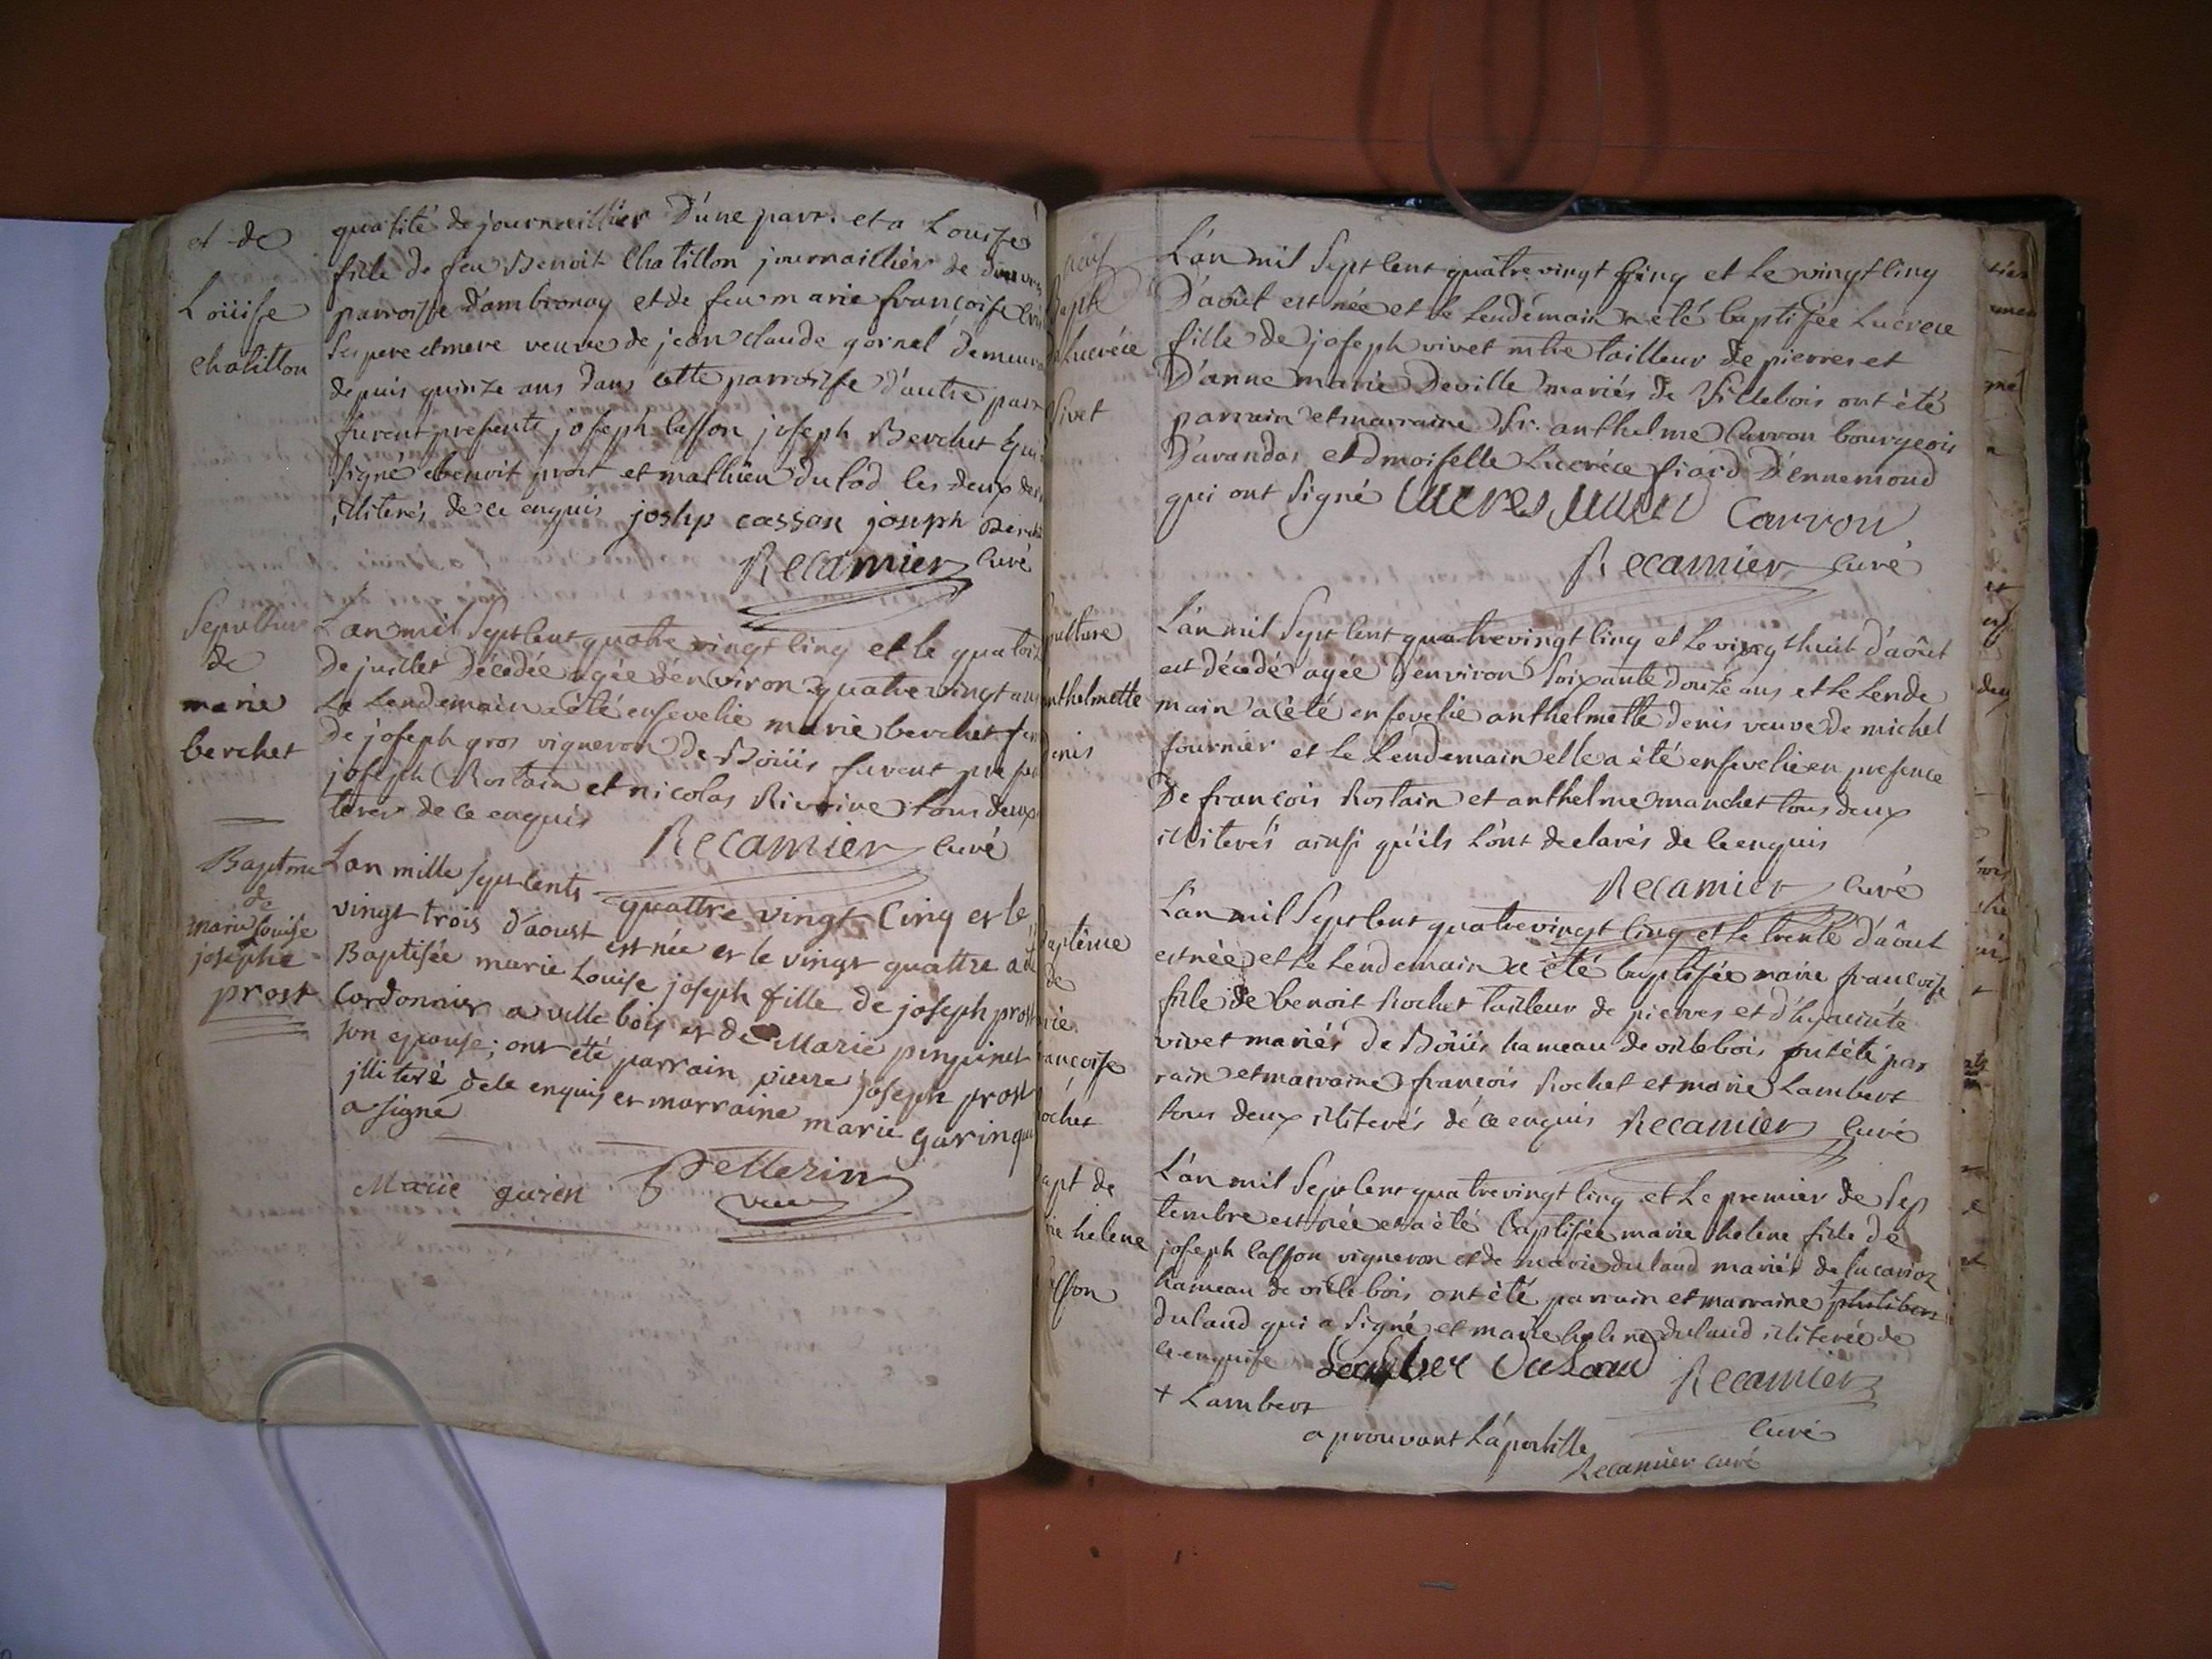 et de
Loüise
chatillon
qualité de journaillier D'une part. et a Louise
fille de feu Benoit Chatillon journaillier de
parroisse d'ambronay et de feu marie francoise
ses pere et mere veuve de jean claude gornal demeura
depuis quinze ans dans cette parroisse d'autre part
furent presents joseph Casson joseph Berchet qui
signé benoit prost et mathieu dulod les deux
illiterés de ce enquis joshp casson joseph
Recamier Curé
Sepulture
de
marie
berchet
L'an mil Sept Cent quatre vingt Cinq et le quatorz
De juillet Décedée agée d'environ quatre vingt ans
Le Lendemain a été ensevelie marie berchet fem
De joseph gros vigneron de Boüis furent presen
joseph Rostain et nicolas Rivoire tous deux
terés de ce enquis
Recamier Curé
Baptme
de
marie Louise
josephe
prost
Lan mille sept cents quattre vingt Cinq et le
vingt trois d'aoust est née et le vingt quattre a été
Baptisée marie Louise joseph fille de joseph prost
Cordonnier a ville bois et de Marie pinginet
son epouse; ont été parrain pierre joseph prost
jlliteré de ce enquis et marraine marie garin qui
a signé
Marie garin Pellerin
vic
Bapt
de Lucréce
Vivet
L'an mil Sept Cent quatre vingt Cinq et Le vingt Cinq
D'août est née et le Lendémain a été baptisée Lucrece
fille de joseph vivet mtre tailleur de pierres et
D'anne marie Deville mariés de Villebois ont été
parrain et marraine Sr. anthelme Carron bourgeois
D'arandas et dmoiselle Lucréce fiard D'ennemond
qui ont signé Carron
Recamier Curé
pulture
anthelmette
denis
L'an mil Sept Cent quatre vingt Cinq et Le vingt huit d'août
est décedé agée D'environ soixante douze ans et Le Lende
main a été ensevelie anthelmette denis veuve de michel
fournier et Le Lendemain elle a été ensevelie en presence
De francois Rostain et anthelme manchet tous deux
illiterés ainsi qu'ils L'ont declarés de ce enquis
Recamier Curé
baptême
de
rie
rancoise
ochet
L'an mil Sept Cent quatre vingt Cinq et Le trente d'août
est née et Le Lendemain a été baptisée marie francoise
fille de benoit Rochet tailleur de pierres et d'hyacinte
vivet mariés De Boüis hameau de villebois ont été par
rain et marraine francois Rochet et marie Lambert
tous deux illiterés dé ce enquis Recamier Curé
apt de
rie helene
asson
L'an mil Sept Cent quatre vingt Cinq et Le premier de Sep
tembre est née et a été baptisée marie helene fille de
joseph Casson vigneron et de marie dulaud mariés de
hameau de ville bois ont été parrain et marraine philibert
dulaud qui a signé et marie helene dulaud illiterée de
ce enquise Lamber Dulaud Recamier
Curé
+ Lambert
aprouvant L'apostille
Recamier curé